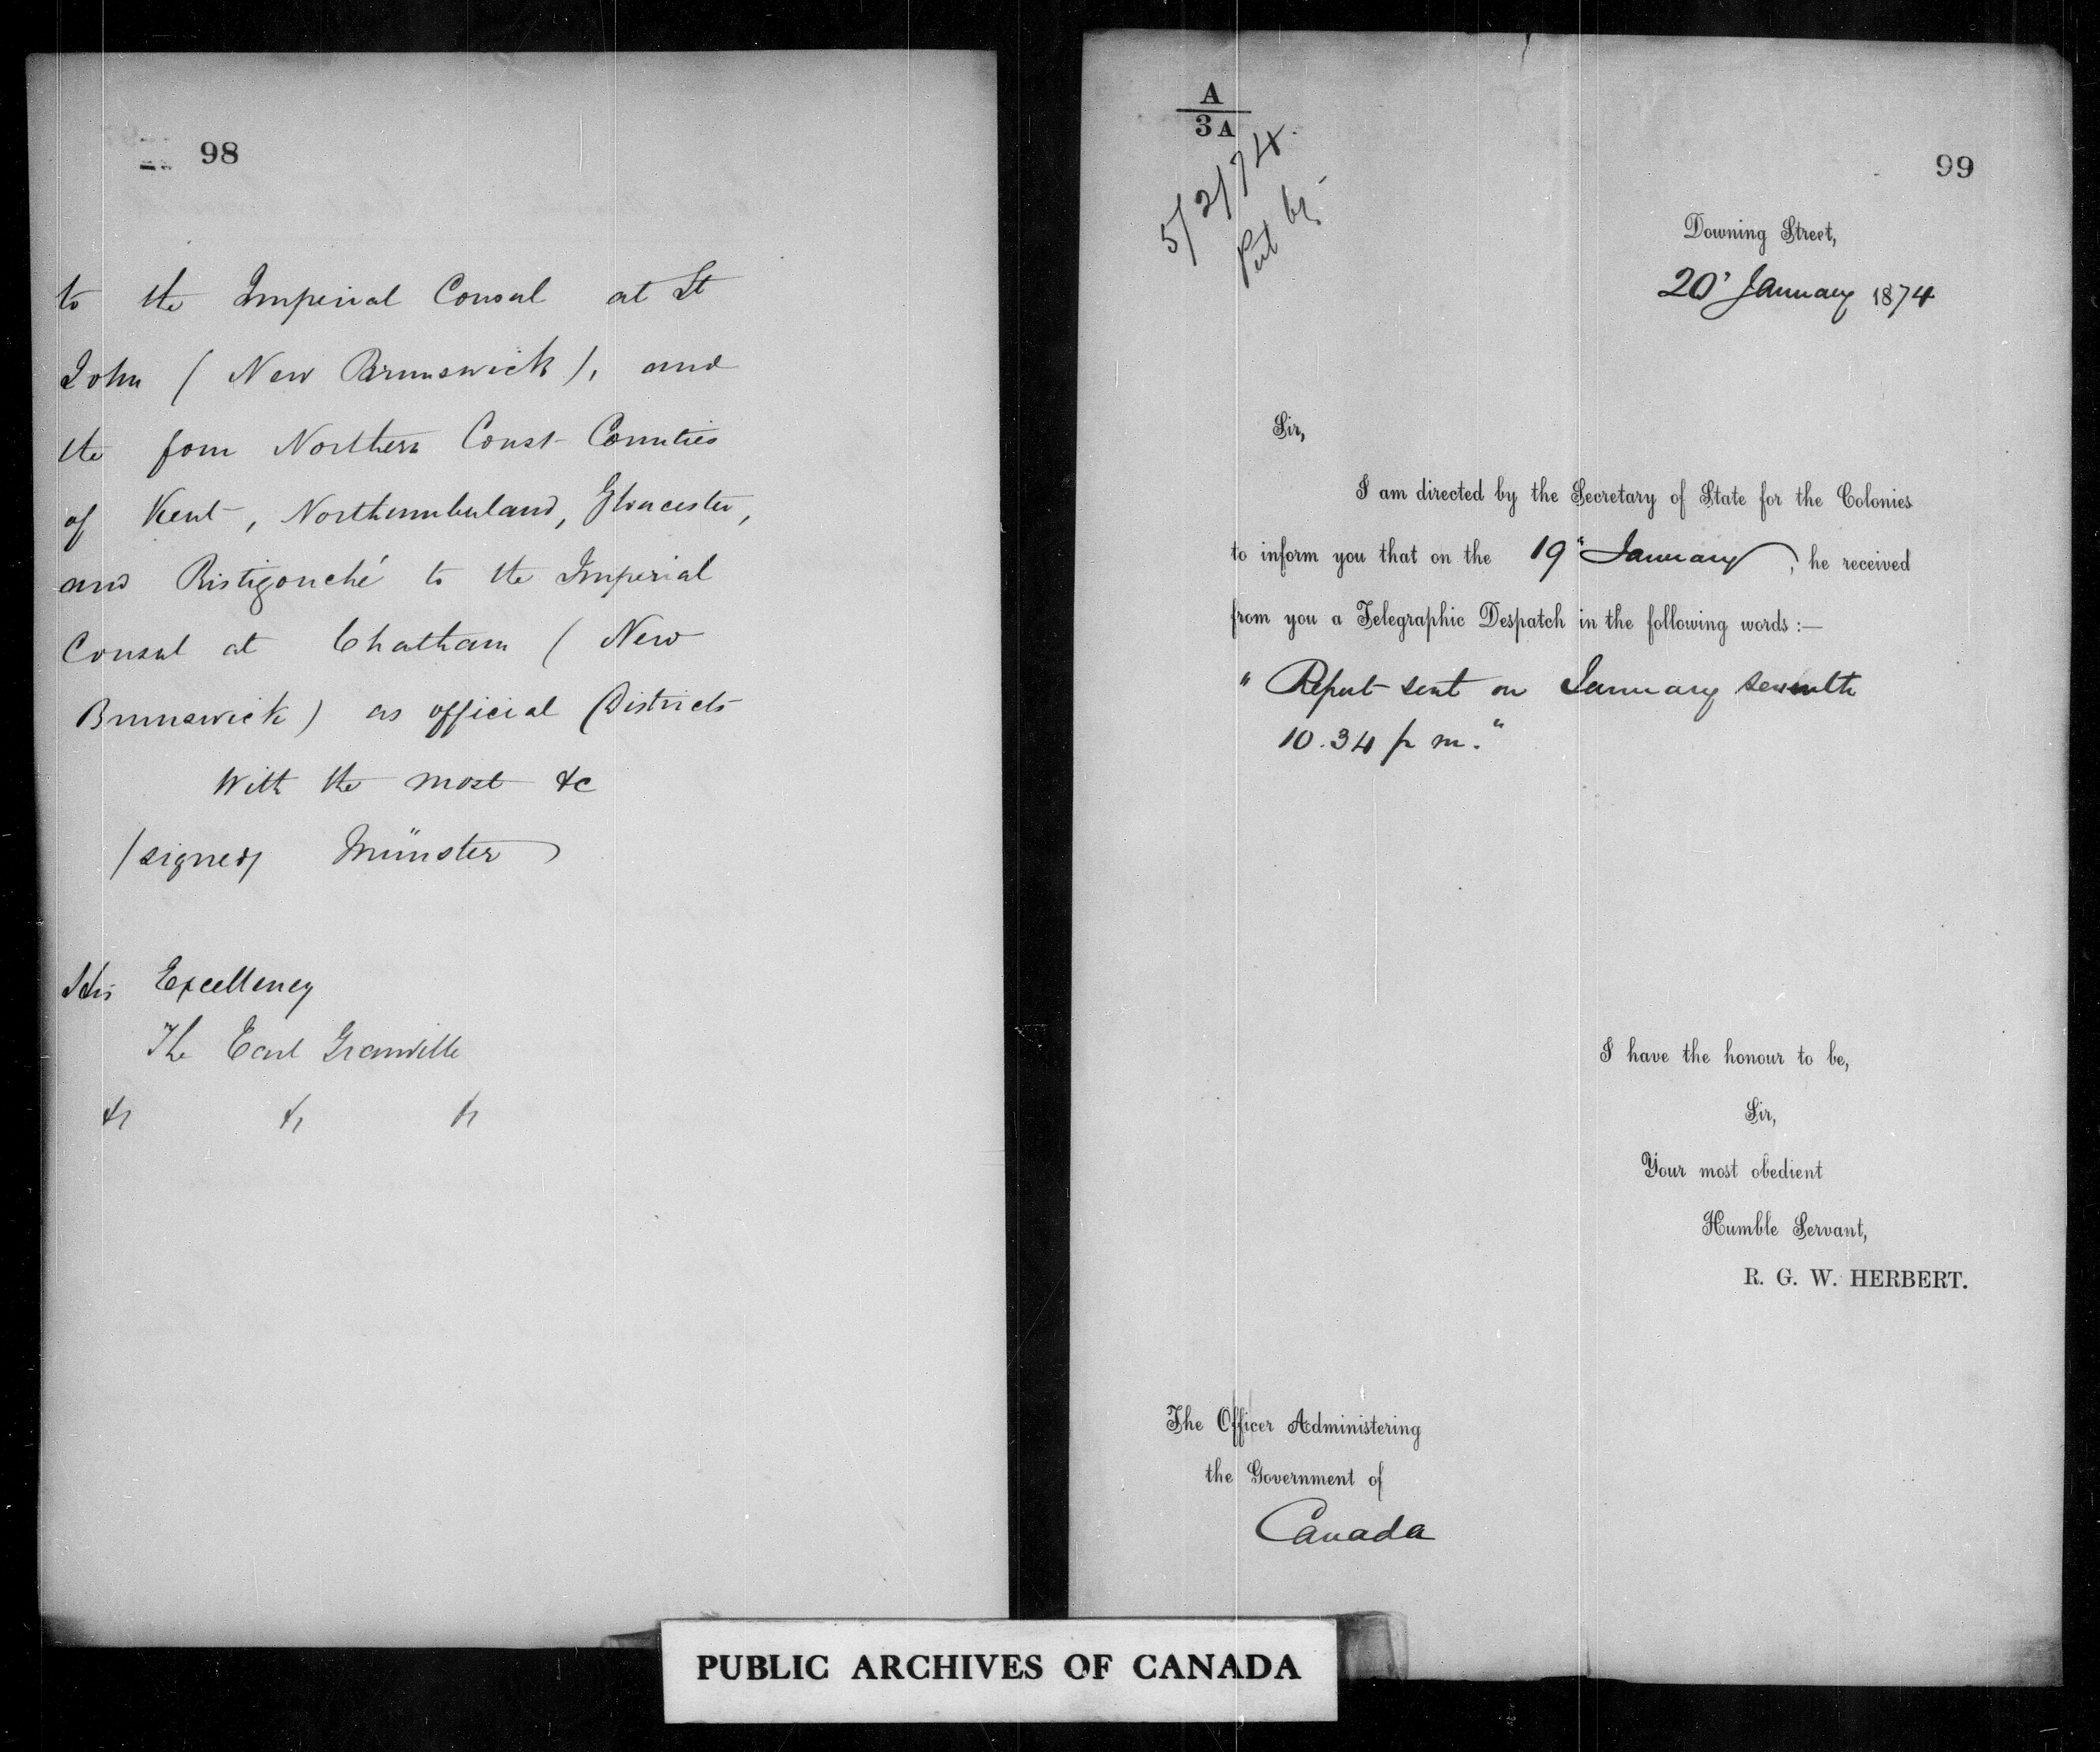 98
to the Imperial Consul at St
John (New Brunswick), and
the four Northern Coast Counties
of Kent, Northumberland, Gloucester,
and Ristigouché to the Imperial
Consul at Chatham (New
Brunswick) as official Districts
With the most &c
(signed) Münster
His Excellency
The Earl Granville
&c &c &c
A
3A
5/2/74
Put by
99
Downing Street,
20 January 1874
Sir,
I am directed by the Secretary of State for the Colonies
to inform you that on the 19" January, he received
from you a Telegraphic Despatch in the following words:—
" Report sent on January seventh
10.34 p m."
I have the honour to be,
Sir,
Your most obedient
Humble Servant,
R. G. W. HERBERT.
The Officer Administering
the Government of
Canada
PUBLIC ARCHIVES OF CANADA